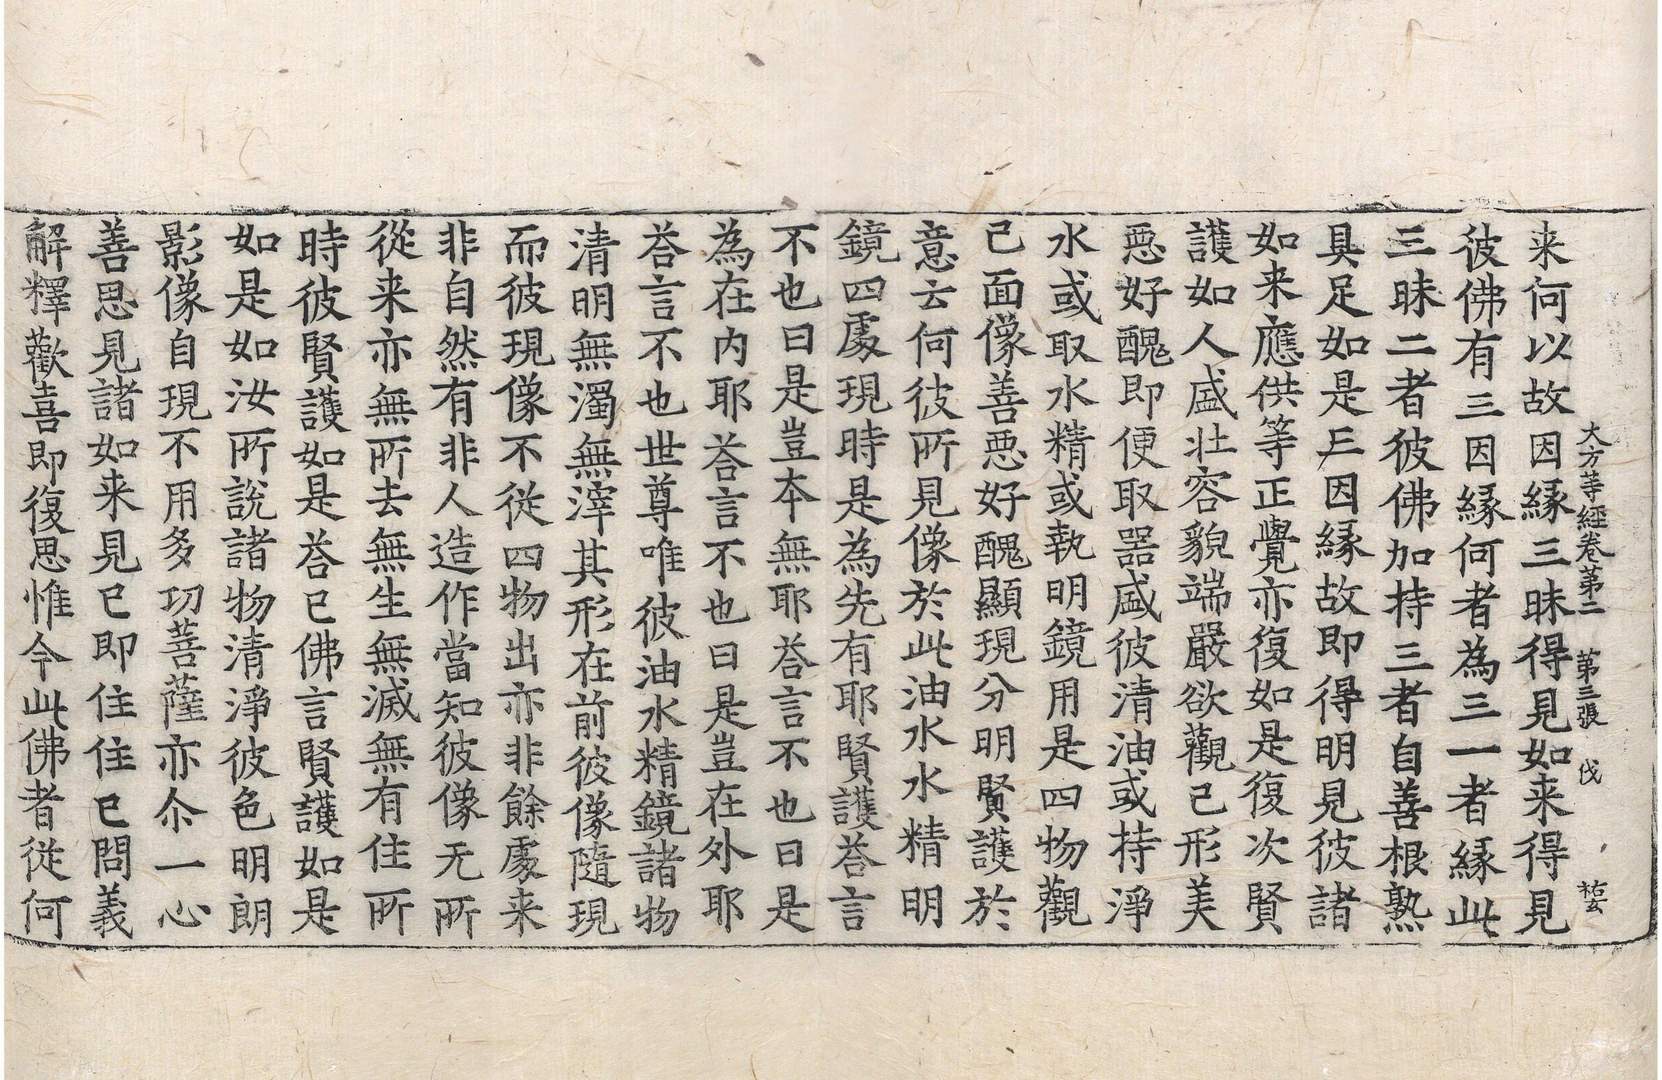 大方等經卷第二　第三張　伐　祐玄
来何以故因縁三昧得見如来得見
彼佛有三因縁何者為三一者縁此
三昧二者彼佛加持三者自善根熟
具足如是三因縁故即得明見彼諸
如来應供等正覺亦復如是復次賢
護如人盛壮容貌端嚴欲觀己形美
惡好醜即便取器盛彼清油或持淨
水或取水精或執明鏡用是四物觀
己面像善惡好醜顯現分明賢護於
意云何彼所見像於此油水水精明
鏡四處現時是為先有耶賢護荅言
不也曰是豈本無耶荅言不也曰是
為在内耶荅言不也曰是豈在外耶
荅言不也世尊唯彼油水精鏡諸物
清明無濁無滓其形在前彼像隨現
而彼現像不從四物出亦非餘處来
非自然有非人造作當知彼像无所
從来亦無所去無生無滅無有住所
時彼賢護如是荅已佛言賢護如是
如是如汝所說諸物清淨彼色明朗
影像自現不用多功菩薩亦尒一心
善思見諸如来見已即住住已問義
解釋歡喜即復思惟今此佛者從何